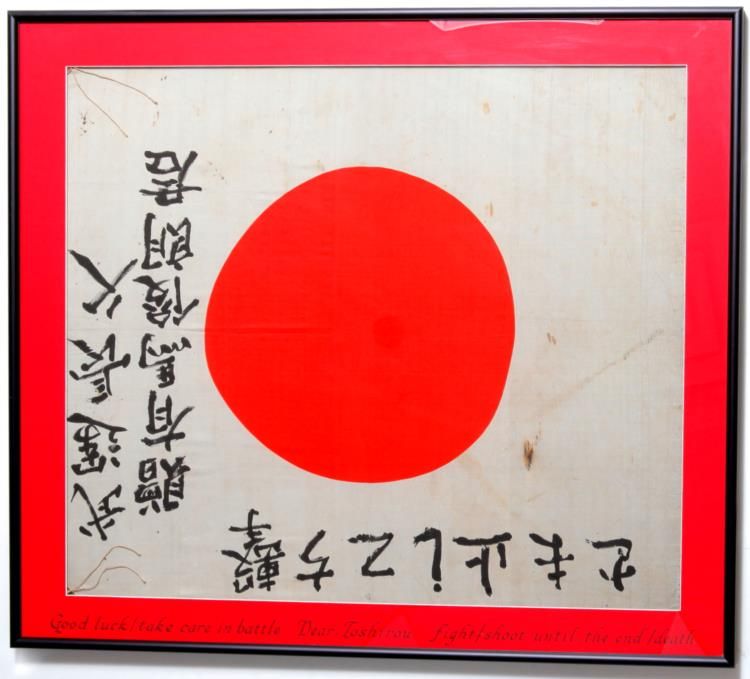 武運長久
贈有馬俊朗君
撃ちてし止まむ
Good luck/take care in battle Dear, Toshirou fight/shoot until the end/death